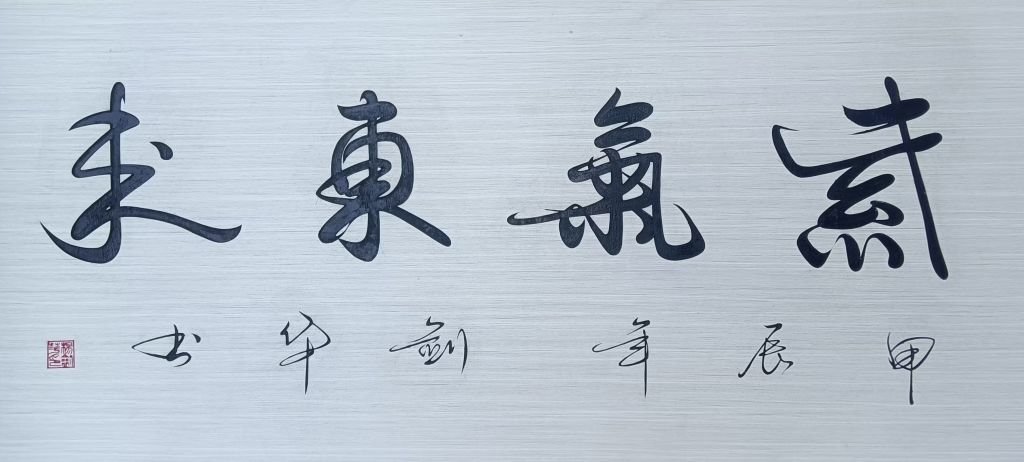 紫氣東来
甲辰年劍华书